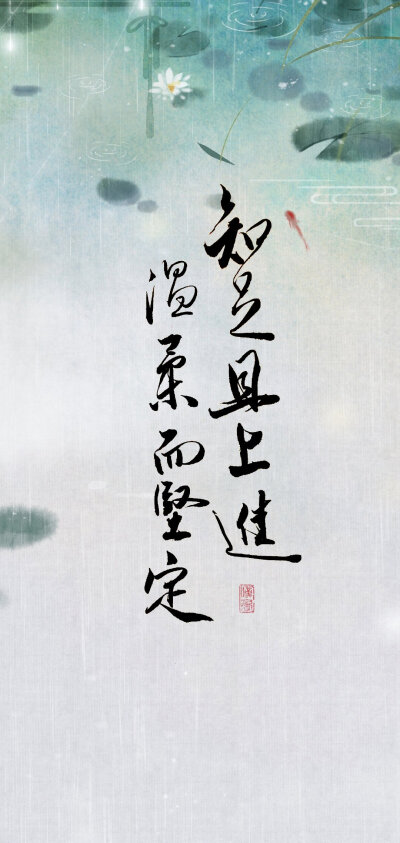 知足且上進
温柔而堅定